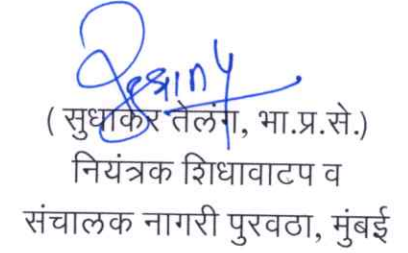 ( सुधाकर तेलंग, भा.प्र.से.)
नियंत्रक शिधावाटप व
संचालक नागरी पुरवठा, मुंबई